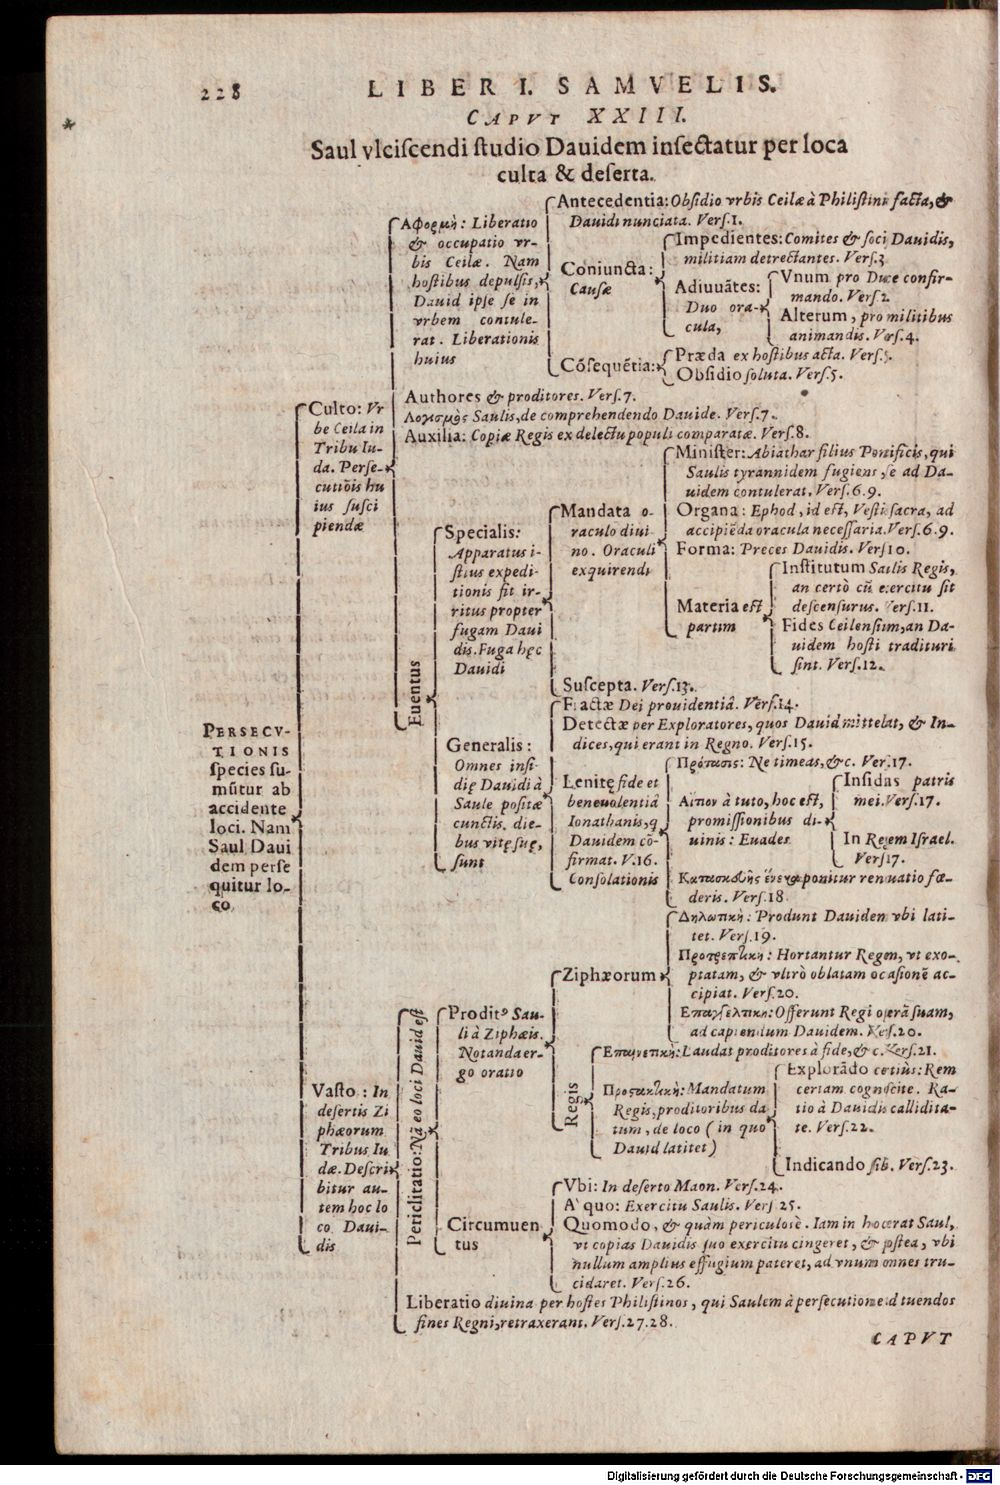 228
LIBER I. SAMVELIS.
CAPVT XXIII.
Saul vlciscendi studio Dauidem insectatur per loca
culta & deserta.
PERSECV-
TIONIS
species su-
mūtur ab
accidente
loci. Nam
Saul Daui
dem perse
quitur lo-
co,
Culto: Vr
be Ceila in
Tribu Iu-
da. Perse-
cutiōis hu
ius susci
piendæ
Αφορμὴ: Liberatio
& occupatio vr-
bis Ceilæ. Nam
hostibus depulsis,
Dauid ipse se in
vrbem contule-
rat. Liberationis
huius
Antecedentia: Obsidio vrbis Ceilæ à Philistinis facta, &
Dauidi nunciata. Vers.1.
Coniuncta:
Causæ
Impedientes: Comites & socii Dauidis,
militiam detrectantes. Vers.3
Adiuuātes:
Duo ora-
cula,
Vnum pro Duce confir-
mando. Vers.2
Alterum, pro militibus
animandis. Vers.4.
Cōsequētia:
Præda ex hostibus acta. Vers.5.
Obsidio soluta. Vers.5.
Authores & proditores. Vers.7.
Λογισμὸς Saulis, de comprehendendo Dauide. Vers.7.
Auxilia: Copiæ Regis ex delectu populi comparatæ. Vers.8.
Euentus
Specialis:
Apparatus i-
stius expedi-
tionis fit ir-
ritus propter
fugam Daui
dis. Fuga hęc
Dauidi
Mandata o-
raculo diui
no. Oraculi
exquirendi
Minister: Abiathar filius Pontificis, qui
Saulis tyrannidem fugiens, se ad Da-
uidem contulerat. Vers.6.9.
Organa: Ephod, id est, Vestis sacra, ad
accipiēda oracula necessaria. Vers.6.9.
Forma: Preces Dauidis. Vers 10.
Materia est
partim
Institutum Saulis Regis,
an certò cū exercitu sit
descensurus. Vers.11.
Fides Ceilensium, an Da-
uidem hosti tradituri
sint. Vers.12.
Suscepta. Vers.13.
Generalis:
Omnes insi-
dię Dauidi à
Saule positæ
cunctis die-
bus vitę suę,
sunt
Fractæ Dei prouidentiâ. Vers.14.
Detectæ per Exploratores, quos Dauid mittebat, & In-
dices, qui erant in Regno. Vers.15.
Lenitę fide et
beneuolentiâ
Ionathanis, q
Dauidem cō-
firmat. V.16.
Consolationis
Πρότασις: Ne timeas, &c. Ver.17.
Αἴτιον à tuto, hoc est,
promissionibus di-
uinis: Euades
Insidias patris
mei. Vers.17.
In Regem Israel.
Vers 17.
Κατασκευῆς ἕνεκα ponitur renouatio fœ-
deris. Vers.18
Vasto: In
desertis Zi
phæorum
Tribus Iu
dæ. Descri
bitur au-
tem hoc lo
co Daui-
dis
Periclitatio: Nā eo loci Dauid est
Proditꝰ Sau-
li à Ziphæis.
Notanda er-
go oratio
Ziphæorum
Δηλωτικὴ: Produnt Dauidem vbi lati-
tet. Vers.19.
Προτρεπτικὴ: Hortantur Regem, vt exo-
ptatam, & vltrò oblatam occasionē ac-
cipiat. Vers.20.
Επαγγελτικὴ: Offerunt Regi operā suam,
ad capiendum Dauidem. Vers.20.
Regis
Επαινετικὴ: Laudat proditores à fide, &c. Vers.21.
Προστακτικὴ: Mandatum
Regis, proditoribus da
tum, de loco (in quo
Dauid latitet)
Explorādo certiùs: Rem
certam cognoscite. Ra-
tio à Dauidis callidita-
te. Vers.22.
Indicando sibi. Vers.23.
Circumuen
tus
Vbi: In deserto Maon. Vers.24.
A' quo: Exercitu Saulis. Vers 25.
Quomodo, & quàm periculosè. Iam in hoc erat Saul,
vt copias Dauidis suo exercitu cingeret, & postea, vbi
nullum amplius effugium pateret, ad vnum omnes tru-
cidaret. Vers.26.
Liberatio diuina per hostes Philistinos, qui Saulem à persecutione ad tuendos
fines Regni, retraxerant. Vers.27.28.
CAPVT
Digitalisierung gefördert durch die Deutsche Forschungsgemeinschaft - DFG